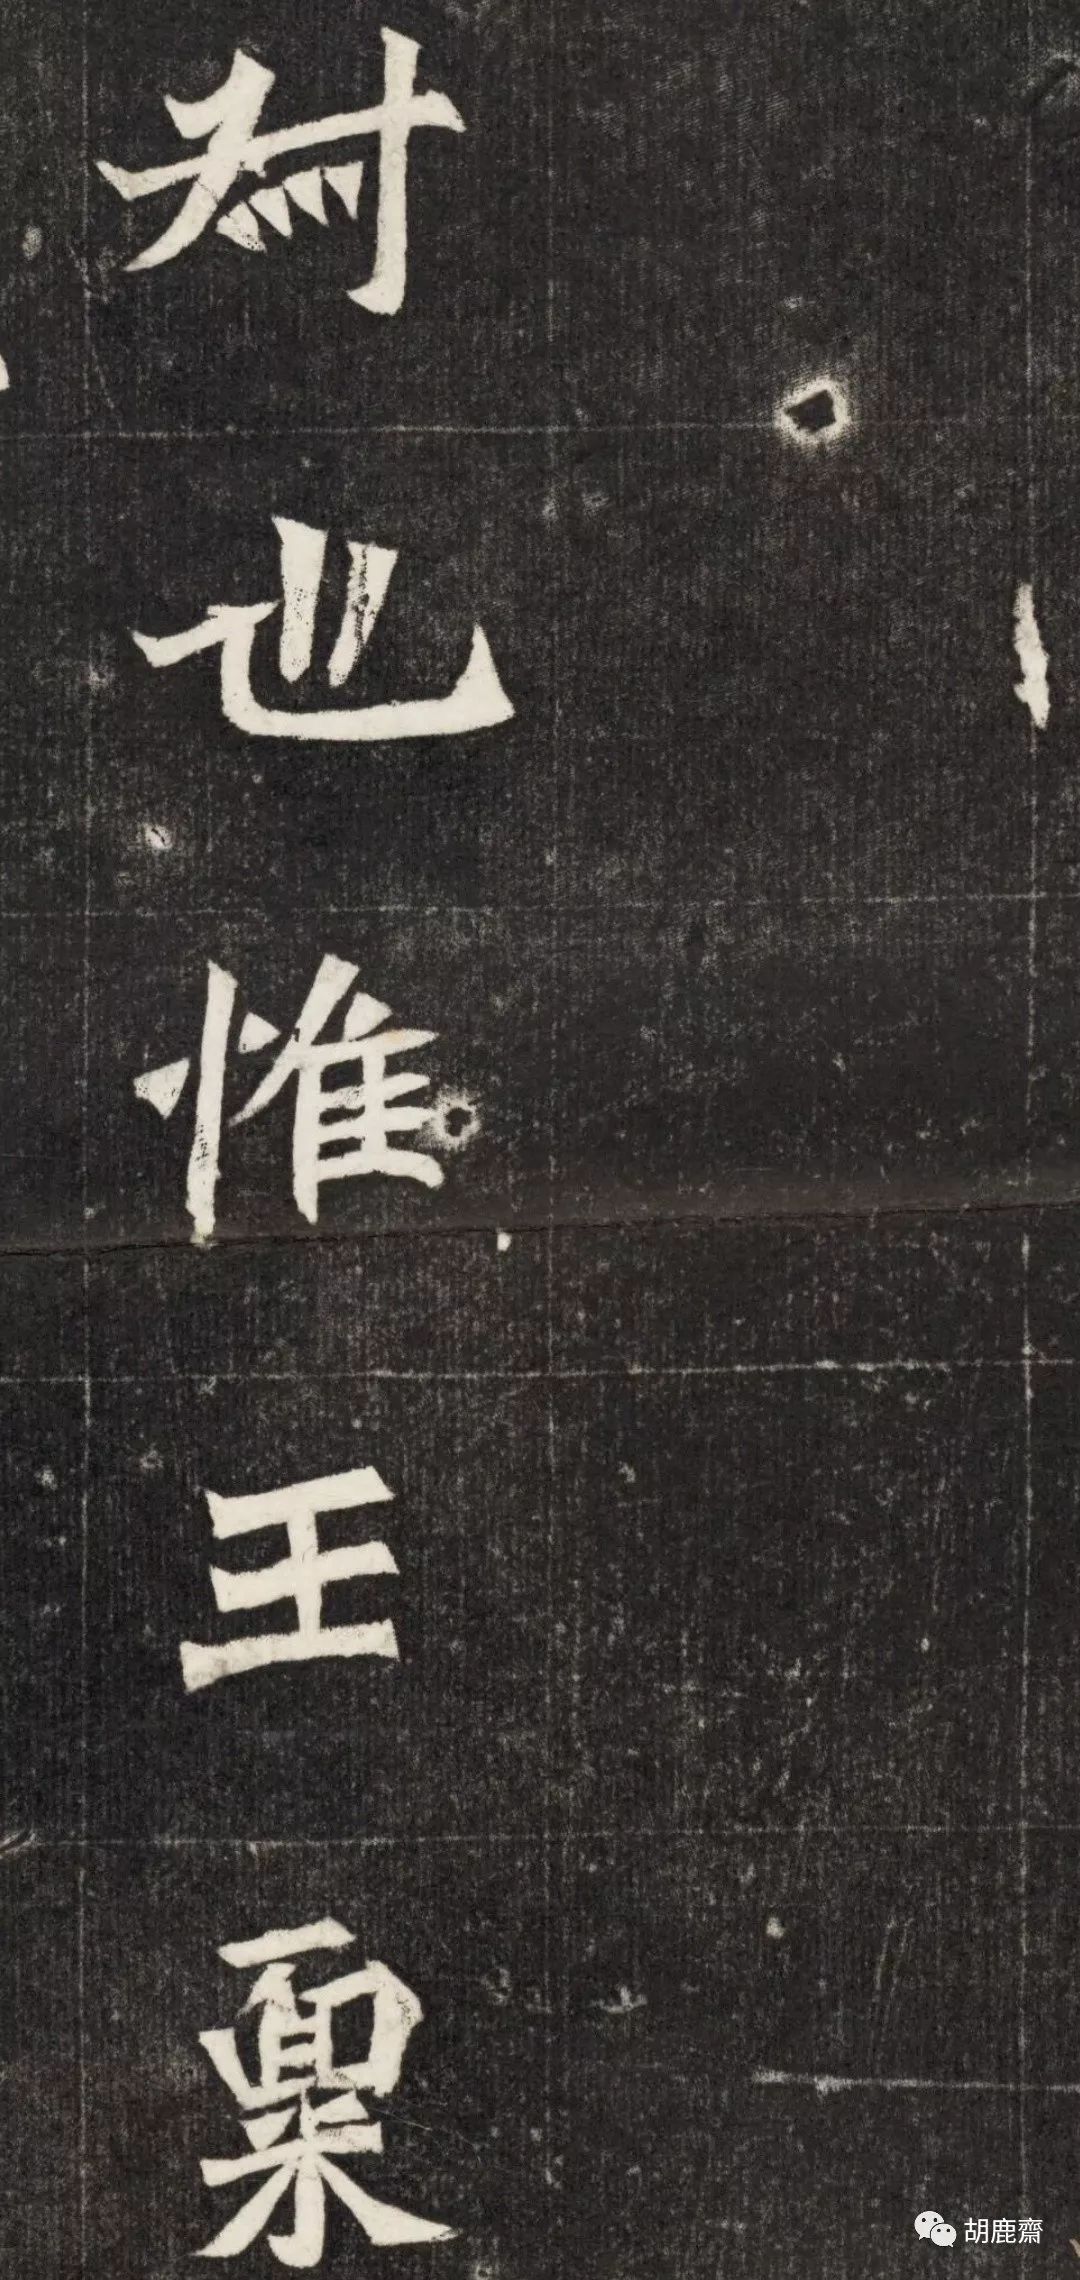 也惟王稟
胡鹿齋